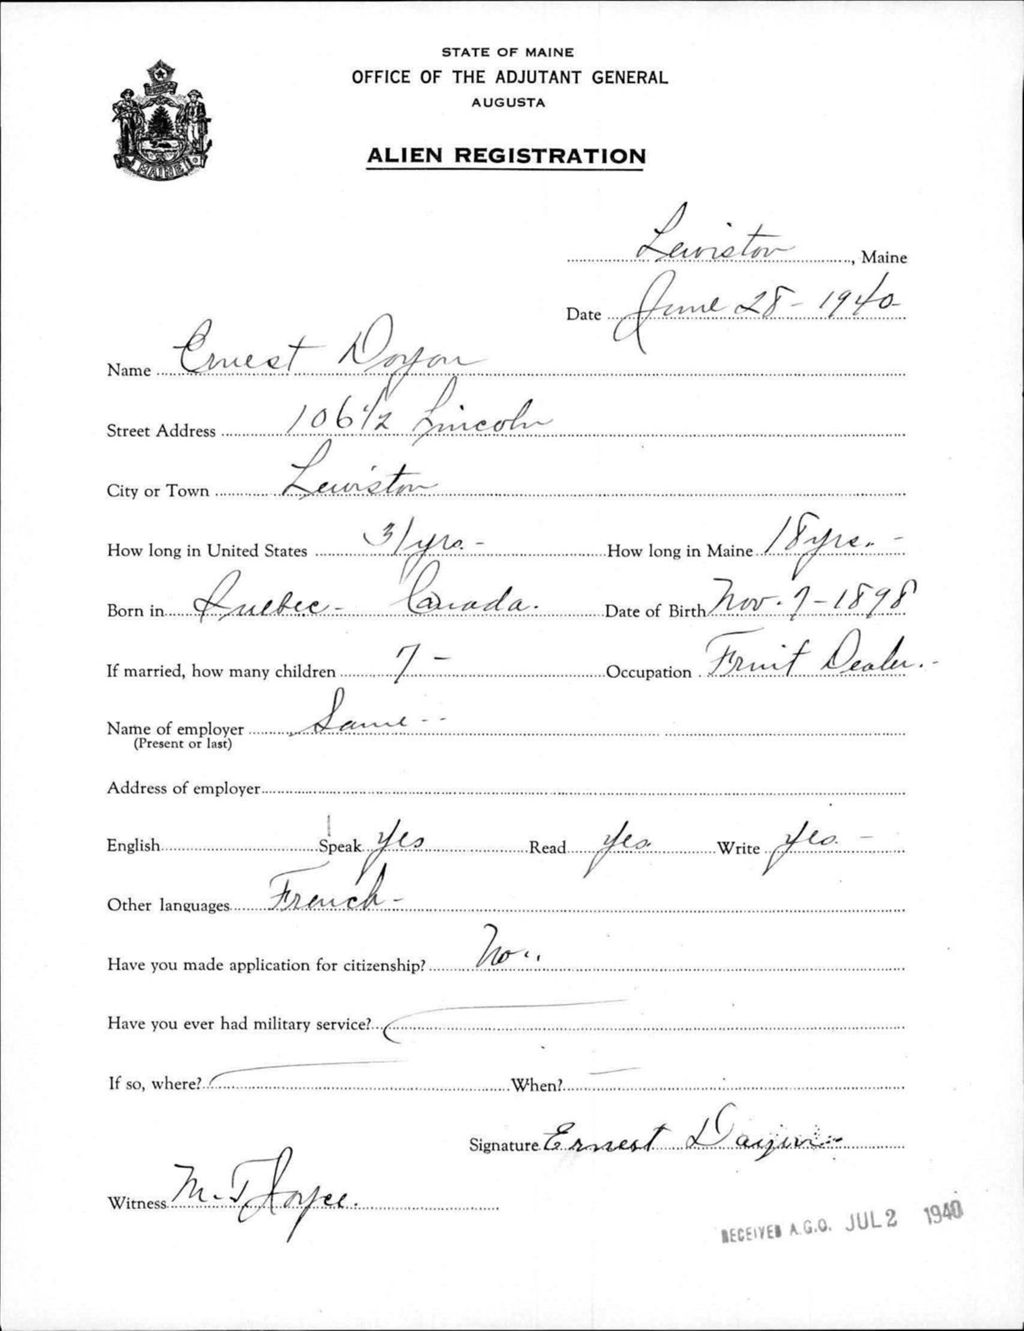 STATE OF MAINE
OFFICE OF THE ADJUTANT GENERAL
AUGUSTA
ALIEN REGISTRATION
MAINE
Lewiston, Maine
Date June 28 - 1940
Name Ernest Doyon
Street Address 106 1/2 Lincoln
City or Town Lewiston
How long in United States 31 yrs. - How long in Maine 18 yrs. -
Born in Quebec - Canada. Date of Birth Nov. 7 - 1898
If married, how many children 7 - Occupation Fruit Dealer. -
Name of employer Same - -
(Present or last)
Address of employer
English Speak Yes Read Yes Write Yes. -
Other languages French -
Have you made application for citizenship? No..
Have you ever had military service?
If so, where? When?
Signature Ernest Doyon
Witness M. T. Joyce.
RECEIVED A.G.O. JUL 2 1940